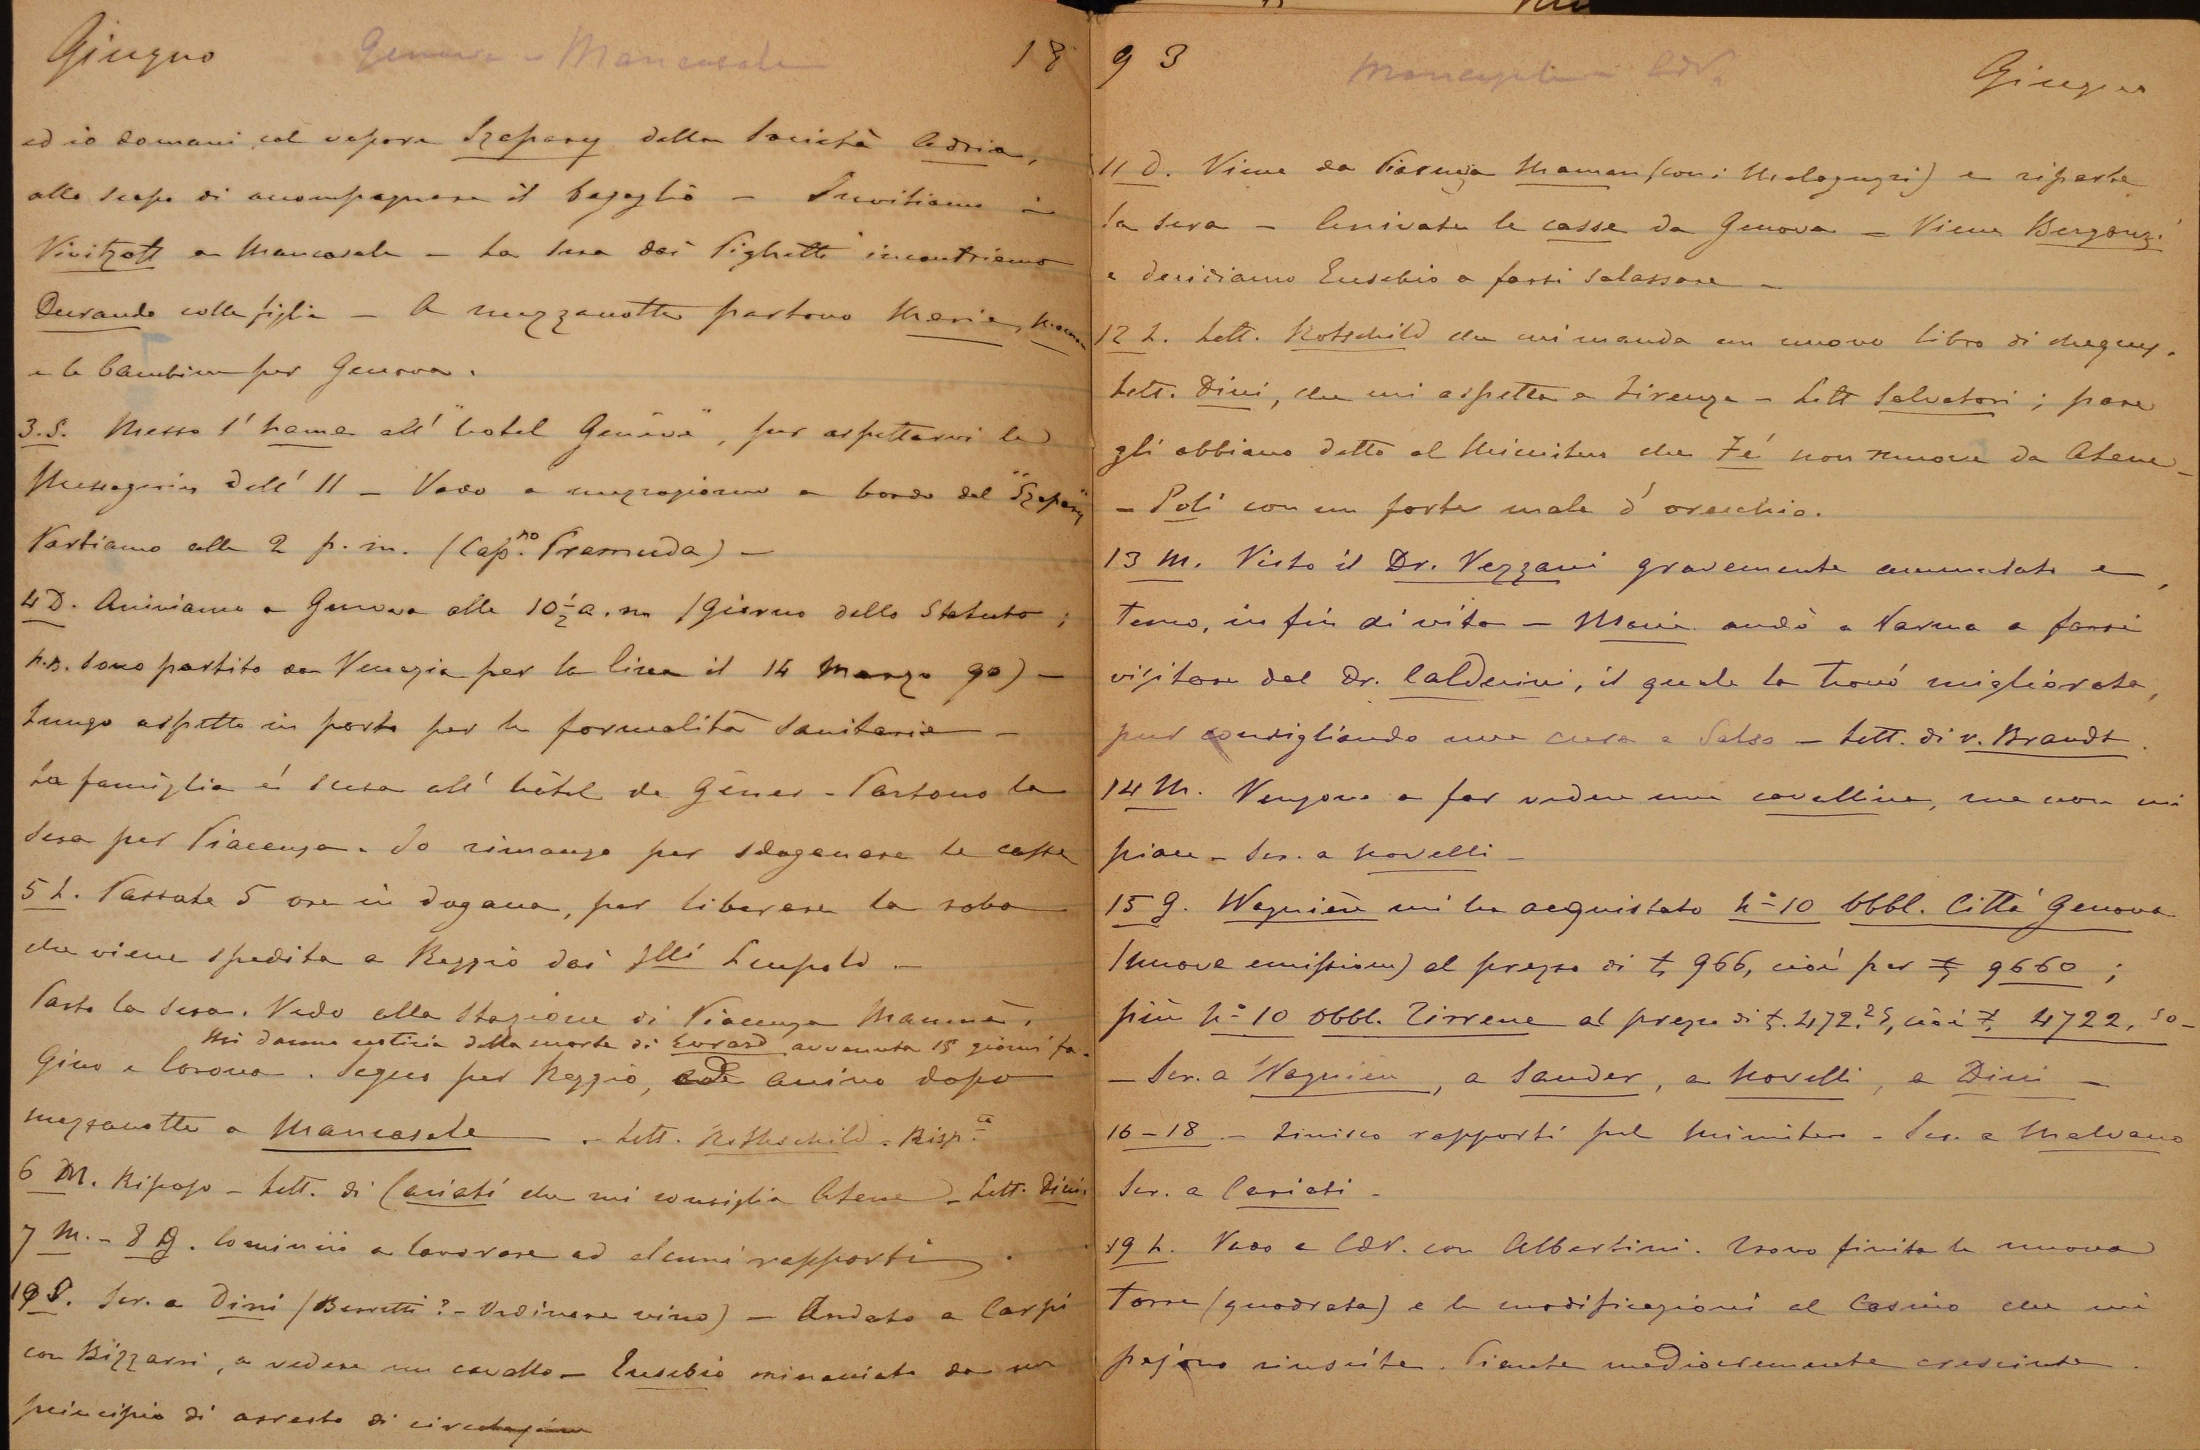 Giugno Genova - Mancasale 18
ed io domani col vapore Szapary della Società Adria,
allo scopo di accompagnare il bagaglio - Invitiamo i
a Mancasale - La sera dai Pighetti incontriamo
Durando colla figlia - A mezzanotte partono Maria, Maman
e le bambine per Genova.
3. S. Messo l' all' "hotel Genève", per aspettarvi le
Messagerie dell' 11 - Vado a mezzogiorno a bordo del "Szapary"
Partiamo alle 2 p. m. (Cap.no Tremuda) -
4 D. Arriviamo a Genova alle 10 1/2 a. m (Giorno dello Statuto;
N.B. Sono partito da Venezia per la Cina il 14 Marzo 90) -
Lungo aspetto in porto per le formalità sanitarie -
La famiglia è scesa all' hôtel de Gênes - Partono la
sera per Piacenza. Io rimango per sdoganare le casse
5 L. Passate 5 ore in dogana, per liberare la roba
che viene spedita a Reggio dai flli Leupold -
Parto la sera. Vedo alla stazione di Piacenza Maman,
Mi danno notizia della morte di Evrard avvenuta 15 giorni fa.
Gino e Corona. Seguo per Reggio, arrivo dopo
mezzanotte a Mancasale - - Lett. Rothschild. Risp.ta
6 M. Riposo - Lett. di Cariati che mi consiglia Atene - Lett. Dini
7 M. - 8 G. Comincio a lavorare ad alcuni rapporti.
10 S. Scr. a Dini (Berretti? - Ordinare vino) - Andato a Carpi
con Bizzarri, a vedere un cavallo - Eusebio minacciato da un
principio di arresto di circolazione
93 Mancasale Giugno
11 D. Viene da Piacenza Maman (con i Malaguzzi) e riparte
la sera - Arrivate le casse da Genova - Viene Bergonzi
e decidiamo Eusebio a farsi salassare -
12 L. Lett. Rotschild che mi manda un nuovo libro di cheques.
Lett. Dini, che mi aspetta a Firenze - Lett Salvatori; pare
gli abbiano detto al Ministero che Fé non muove da Atene -
- Poli con un forte male d'orecchio.
13 M. Visto il Dr. Vezzani gravemente ammalato e,
temo, in fin di vita - Maria andò a Parma a farsi
visitare dal Dr. Calderini, il quale la trovò migliorata,
pur consigliando una cura a Salso - Lett. di v. Brandt.
14 M. Vengono a far vedere una cavallina, ma non mi
piace - Scr. a Novelli -
15 G. Wagnière mi ha acquistato No 10 Obbl. Città Genova
(nuove emissioni) al prezzo di £ 966, cioè per £ 9660;
più No 10 Obbl. Tirrene al prezzo di £. 472.25, cioè £ 4722,50 -
- Scr. a Wagnière, a Sauder, a Novelli, a Dini -
16 - 18 - Finisco rapporti pel Ministero - Scr. a Malvano
Scr. a Cariati -
19 L. Vado a con Albertini. Trovo finita la nuova
Torre (quadrata) e le modificazioni al Casino che mi
pajono riuscite. Piante mediocremente cresciute.